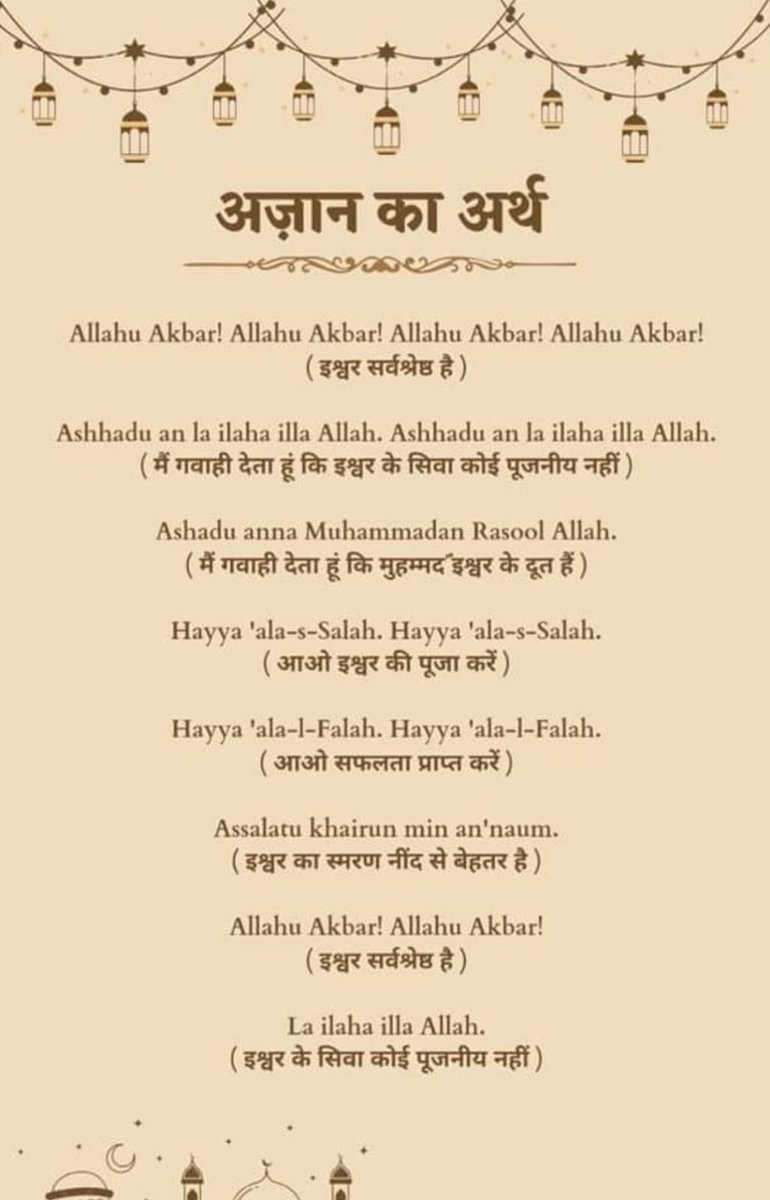 अज़ान का अर्थ
Allahu Akbar! Allahu Akbar! Allahu Akbar! Allahu Akbar!
( इश्वर सर्वश्रेष्ठ है )
Ashhadu an la ilaha illa Allah. Ashhadu an la ilaha illa Allah.
( मैं गवाही देता हूं कि इश्वर के सिवा कोई पूजनीय नहीं )
Ashadu anna Muhammadan Rasool Allah.
( मैं गवाही देता हूं कि मुहम्मद इश्वर के दूत हैं )
Hayya 'ala-s-Salah. Hayya 'ala-s-Salah.
( आओ इश्वर की पूजा करें )
Hayya 'ala-l-Falah. Hayya 'ala-l-Falah.
( आओ सफलता प्राप्त करें )
Assalatu khairun min an'naum.
( इश्वर का स्मरण नींद से बेहतर है )
Allahu Akbar! Allahu Akbar!
( इश्वर सर्वश्रेष्ठ है )
La ilaha illa Allah.
( इश्वर के सिवा कोई पूजनीय नहीं )